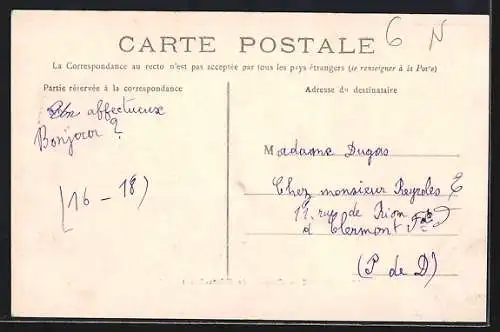 6 N
CARTE POSTALE
La Correspondance au recto n'est pas acceptée par tous les pays étrangers (se renseigner à la Poste)
Partie réservée à la correspondance
Adresse du destinataire
affectueux
Bonjour
(16 - 18)
Madame Dugas
Chez monsieur
11 rue de
à Clermont Fd
(P de D)